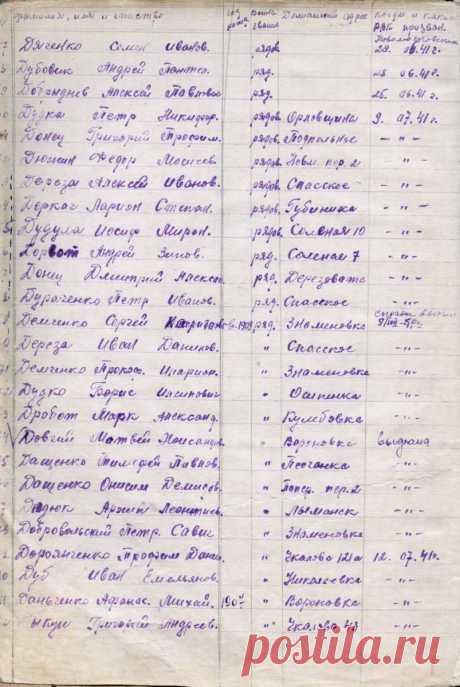 фамилия, имя и отчество год рожд. воин. звание Домашний адрес Когда и каким РВК призван
Новомосковским
Дяченко Семен Иванов. рядов. 29. 06.41 г.
Дубовик Андрей Пантел. ряд. 25. 06.41 г.
Алексей Павлов ряд. 25. 06.41 г.
Дудка Петр Никифор. рядов. Орловщина 9. 07.41 г.
Донец Григорий Трофим. рядов. Подпольное -"-
Дюжин Федор Моисеев рядов. пер. 2 -"-
Дереза Алексей Иванов. рядов. Спасское -"-
Деркач Ларион Степан. рядов. Губиниха -"-
Дудула Иосиф Мирон. рядов. Соленая 10 -"-
Хорват Андрей Зинов. ряд. Соленая 7 -"-
Донец Дмитрий Алексе ряд. Дерезовата -"-
Дураченко Петр Иванов. ряд. Спасское -"-
Демченко Сергей ряд. Знаменовка
Дереза Иван Данилов. " Спасское -"-
Демченко Прокоф. Иларион. " Знаменовка -"-
Дудко Борис " -"-
Дробот Марк Александ. " -"-
Довгий Матвей " Вороновка
Дащенко Тимофей Павлов. " Песчанка -"-
Дащенко Онисим Денисов. " пер. 2 -"-
Дидюк Архип Леонтиев. " -"-
Добровольский Петр. Савич " Знаменовка -"-
Дорошенко Трофим Дани. " Чкалова 121а 12. 07.41 г.
Дуб Иван Емельянов. " Николаевка -"-
Даньченко Афанас. Михай. 1904 " Вороновка -"-
Григорий Андреев. " Чкалова -"-
postila.ru